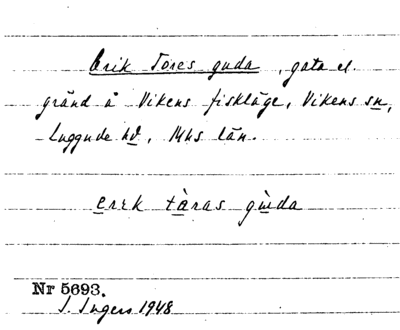 Erik Tores guda, gata el.
gränd å Vikens fiskläge, Vikens sn,
Luggude hd, Mhs län.
erik tàras gùda
Nr 5693.
I. Ingers 1948